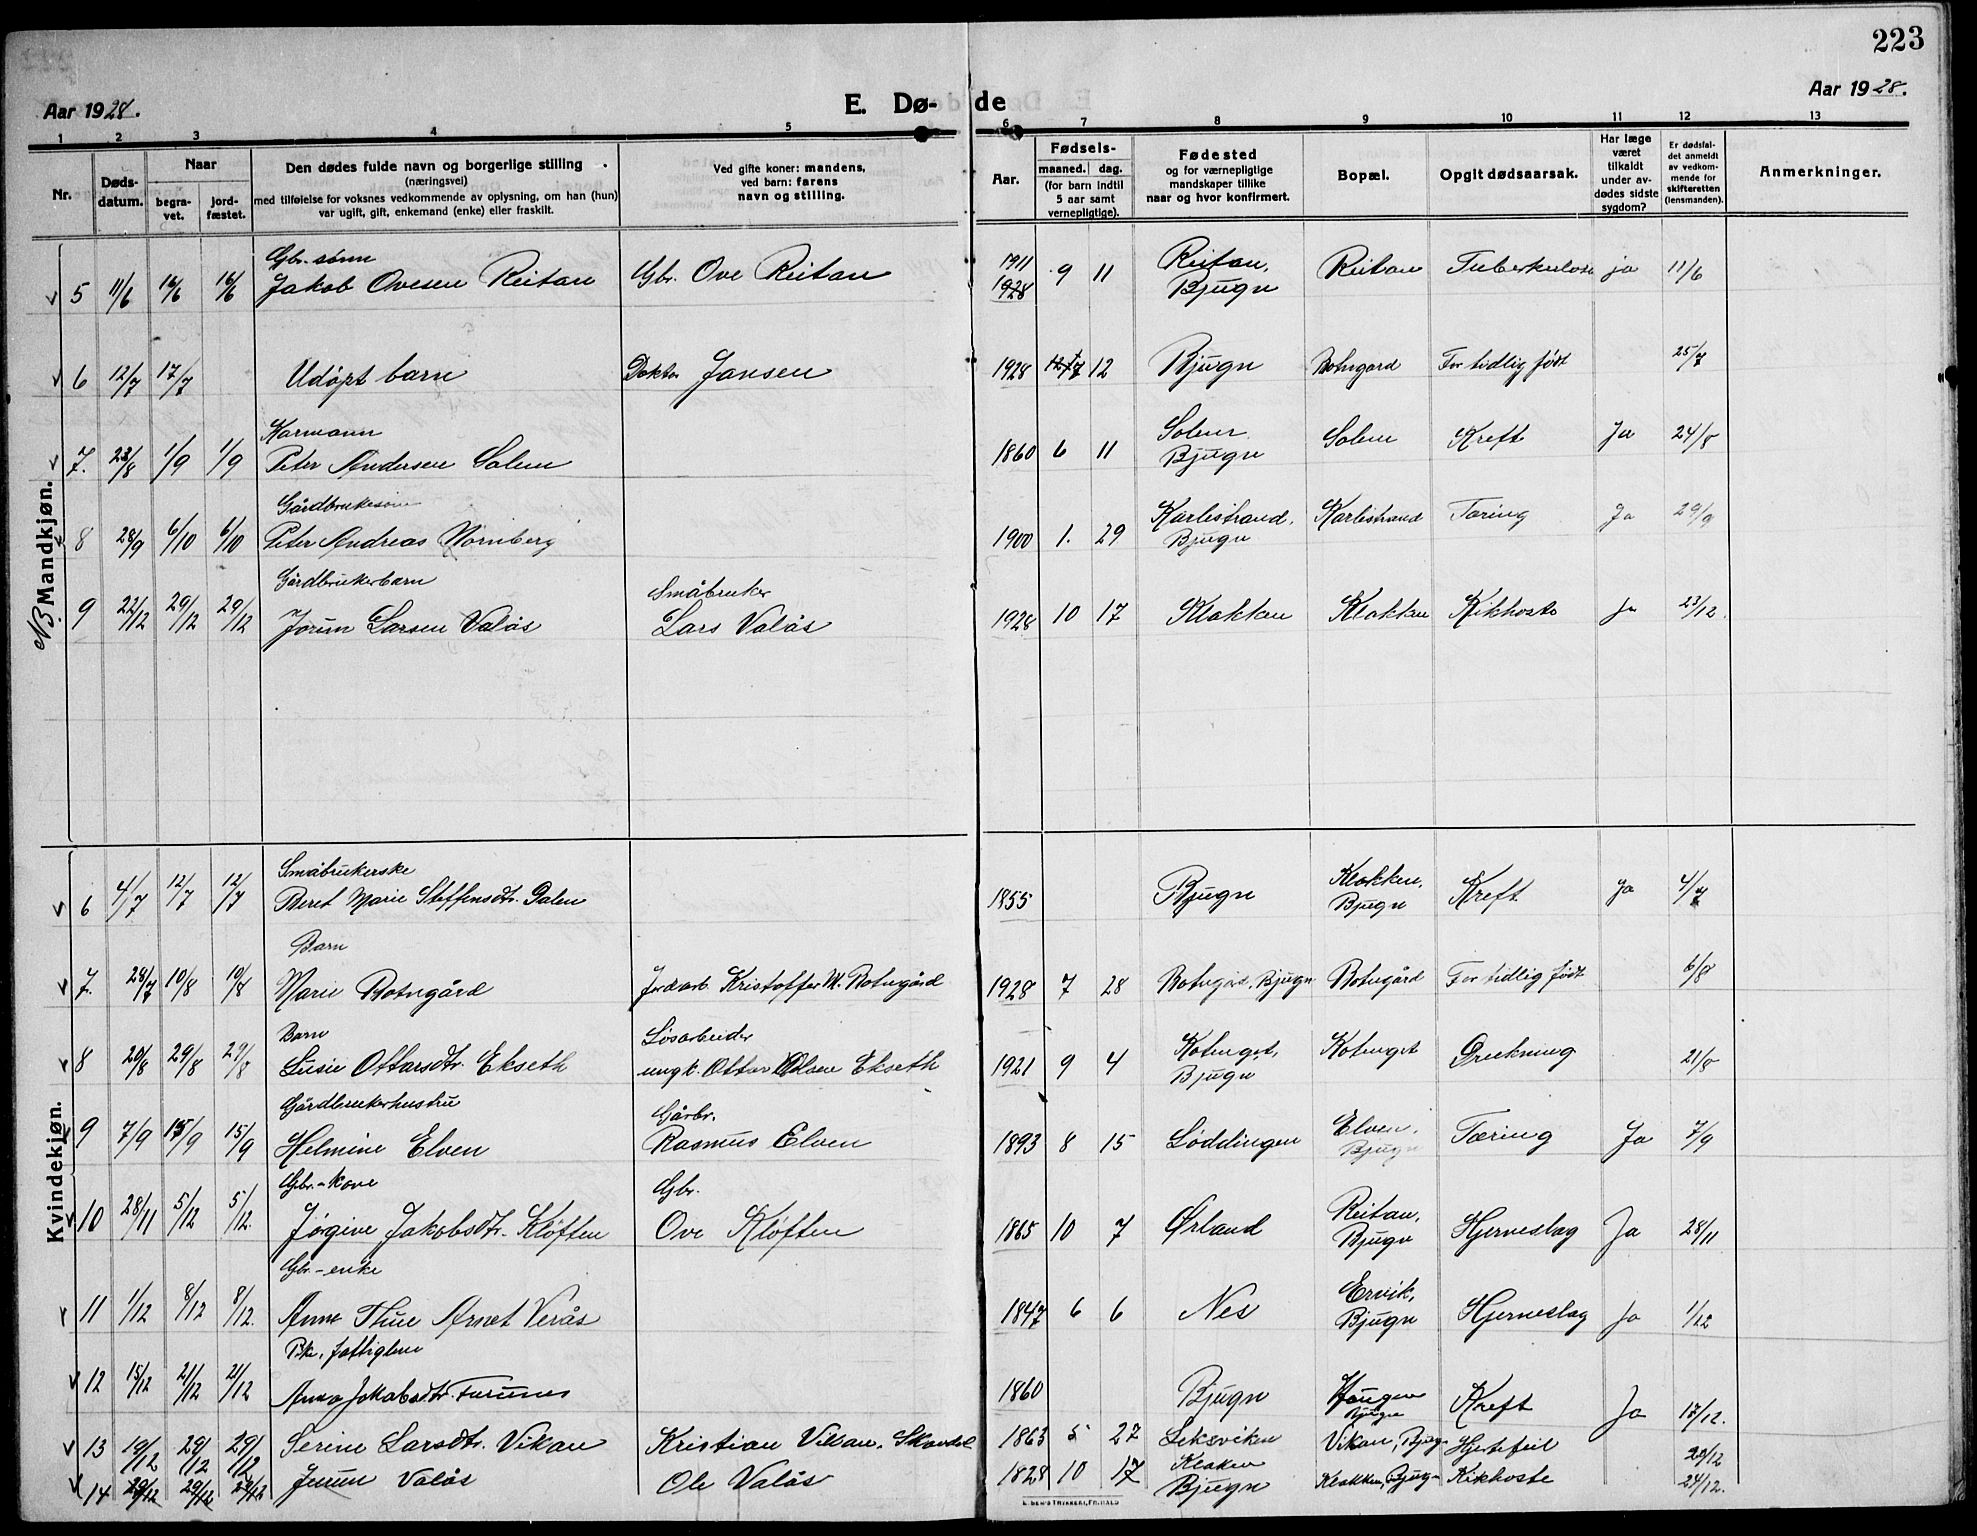 223
Aar 1928.
E. Dø- de
Aar 1928.
1 2 3 4 5 6 7 8 9 10 11 12 13
Nr.
Døds-
datum.
Naar
begra-
vet.
jord-
fæstet.
Den dødes fulde navn og borgerlige stilling
(næringsvei)
med tilføielse for voksnes vedkommende av oplysning, om han (hun)
var ugift, gift, enkemand (enke) eller fraskilt.
Ved gifte koner: mandens,
ved barn: farens
navn og stilling.
Aar.
Fødsels-
maaned. dag.
(for barn indtil
5 aar samt
vernepligtige).
Fødested
og for værnepligtige
mandskaper tillike
naar og hvor konfirmert.
Bopæl.
Opgit dødsaarsak.
Har læge
været
tilkaldt
under av-
dødes sidste
sygdom?
Er dødsfal-
det anmeldt
av vedkom-
mende for
skifteretten
(lensmanden).
Anmerkninger.
NB. Mandkjøn.
Gbr. sønn 1911 Reitan,
5 11/6 16/6 16/6 Jakob Ovesen Reitan Gbr. Ove Reitan 1928 9 11 Bjugn Reitan Tuberkulose ja 11/6
6 12/7 17/7 Udøpt barn Doktor Jansen 1928 7 12 Bjugn Botngard For tidlig født 25/7
Karmann Solem
7. 23/8 1/9 1/9 Peter Andersen Solem 1860 6 11 Bjugn Solem Kreft Ja 24/8
Gårdbrukesøn Karlestrand,
8 28/9 6/10 6/10 Peter Andreas 1900 1. 29 Bjugn Karlestrand Tæring Ja 29/9
Gårdbrukerbarn Småbruker
9 22/12 29/12 29/12 Jorun Larsen Valås Lars Valås 1928 10 17 Klakken Klakken Kikhoste Ja 23/12.
Kvindekjøn.
Småbrukerske Klakken,
6 4/7 12/7 12/7 Beret Marie Steffensdtr. Dalen 1855 Bjugn Bjugn Kreft Ja 4/7
Barn
7. 28/7 10/8 10/8 Marie Botngård Jordarb. Kristoffer M. Botngård 1928 7 28 Botngård, Bjugn Botngård For tidlig født 6/8
Barn Løsarbeider Kotenget,
8 20/8 29/8 29/8 Susie Ottarsdtr. Ekseth ungk. Ottar Olsen Ekseth 1921 9 4 Bjugn Kotenget Drukning 21/8
Gårdbrukerhustru Gårbr. Elven,
9 7/9 15/9 15/9 Helmine Elven Rasmus Elven 1893 8 15 Løddingen Bjugn Tæring Ja 7/9
Gbr.-kone Gbr. Reitan,
10 28/11 5/12 5/12. Jørgine Jakobsdtr. Kløften Ove Kløften 1865 10 7 Ørland Bjugn Hjerneslag Ja 28/11
Gbr.-enke Ervik,
11 1/12 8/12 8/12. Anne Thue Arnet Verås 1847 6 6 Nes Bjugn Hjerneslag Ja 1/12
Pke, fattiglem
12 15/12 21/12 21/12 Anna Jakobsdtr. Furunes 1860 Bjugn Haugen Bjugn Kreft Ja 17/12.
13 19/12 29/12 29/12 Serine Larsdtr. Vikan Kristian Vikan. 1863 5 27 Leksviken Vikan, Bjugn Hjertefeil 20/12
Klaken
14 29/12 29/12 Jorun Valås Ole Valås 1828 10 17 Bjugn Klakken, Bjugn Kikhoste 24/12.